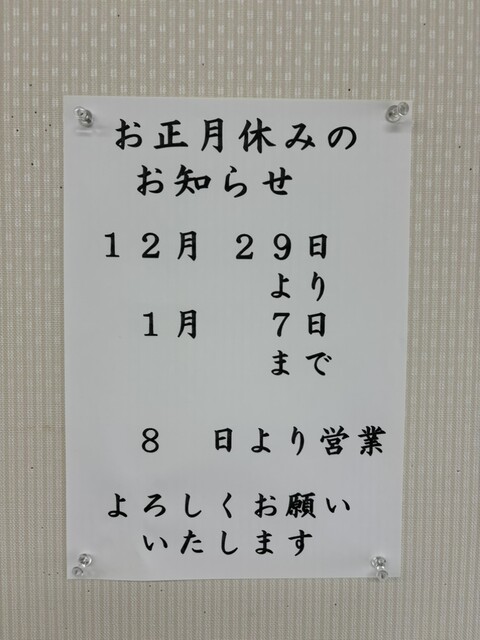 お正月休みの
お知らせ
１２月 ２９日
より
１月 ７日
まで
８ 日より営業
よろしくお願い
いたします